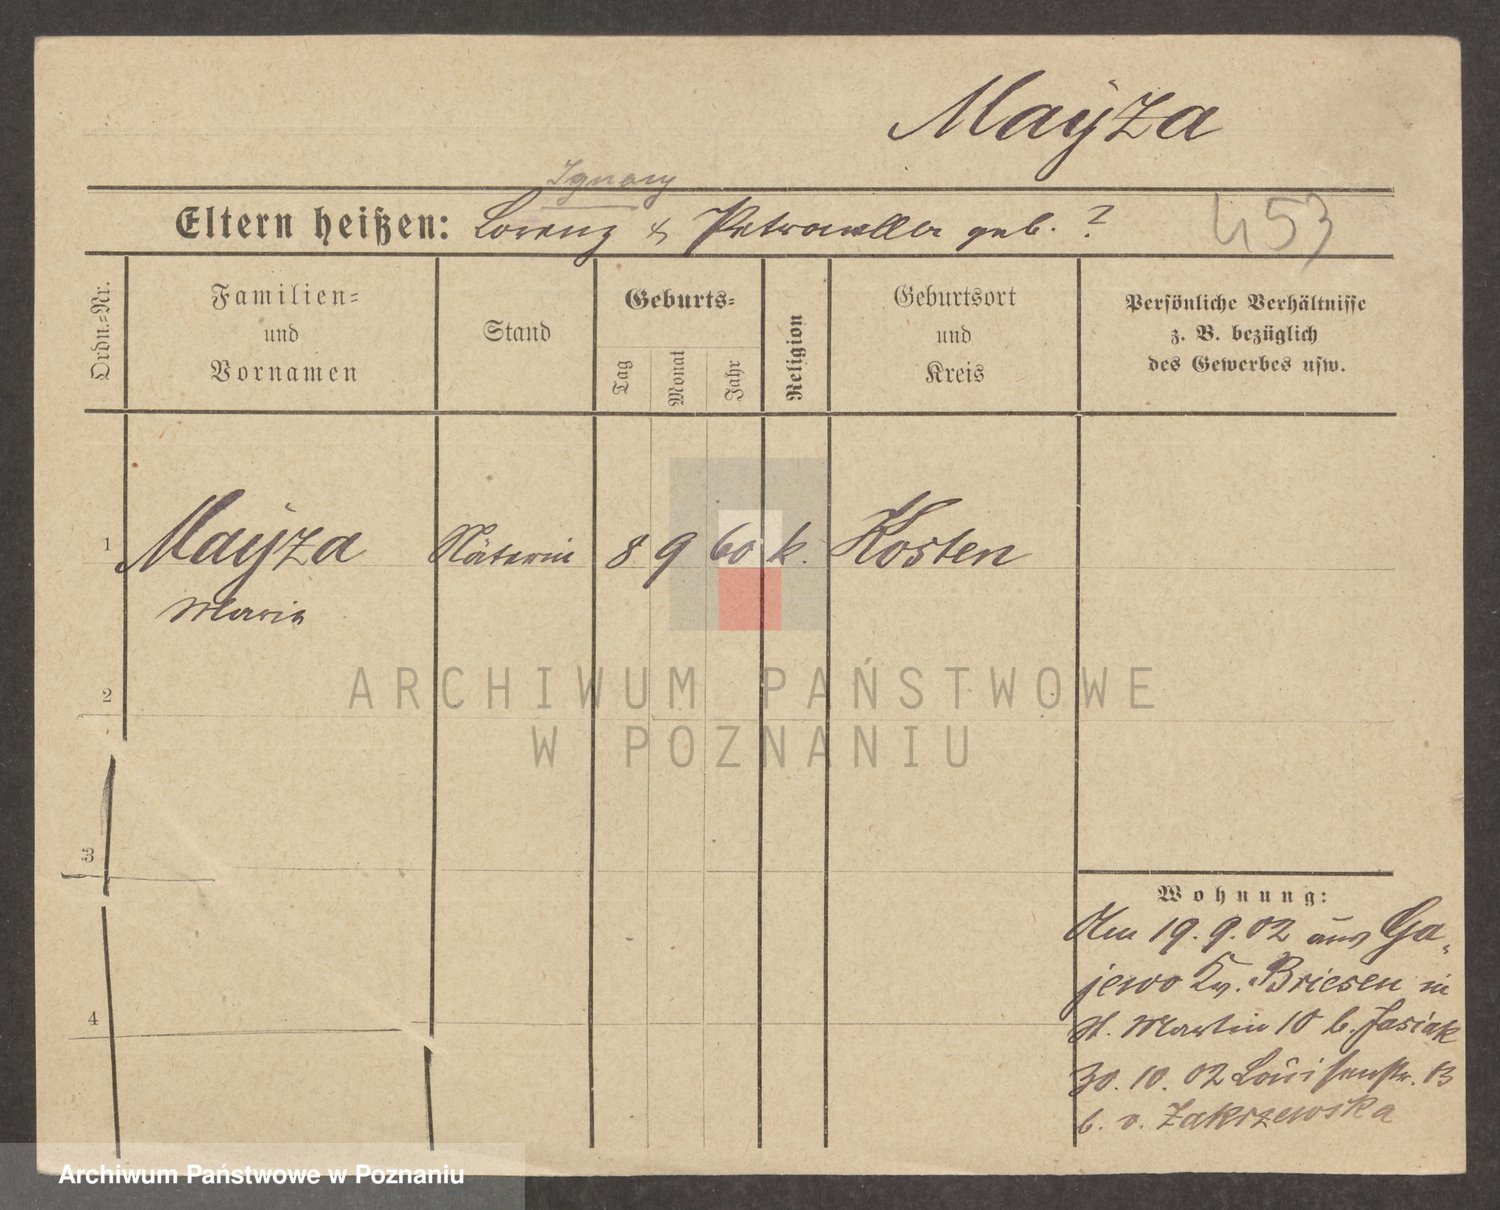 Mayza
Ignacy
Eltern heißen: Lorenz & Petronella geb. ?
453
Ordn.=Nr.
Familien=
und
Vornamen
Stand
Geburts=
Tag
Monat
Jahr
Religion
Geburtsort
und
Kreis
Persönliche Verhältnisse
z. B. bezüglich
des Gewerbes usw.
1 Mayza Näterin 8 9 60 k. Kosten
Maria
2
ARCHIWUM PAŃSTWOWE
W POZNANIU
3
4
Wohnung:
19. 9. 02 aus Ga-
jewo Kr. Briesen in
St. Martin 10 b. Jasiak
30. 10. 02 Louisenstr. 13
b. v. Zakrzewska
Archiwum Państwowe w Poznaniu